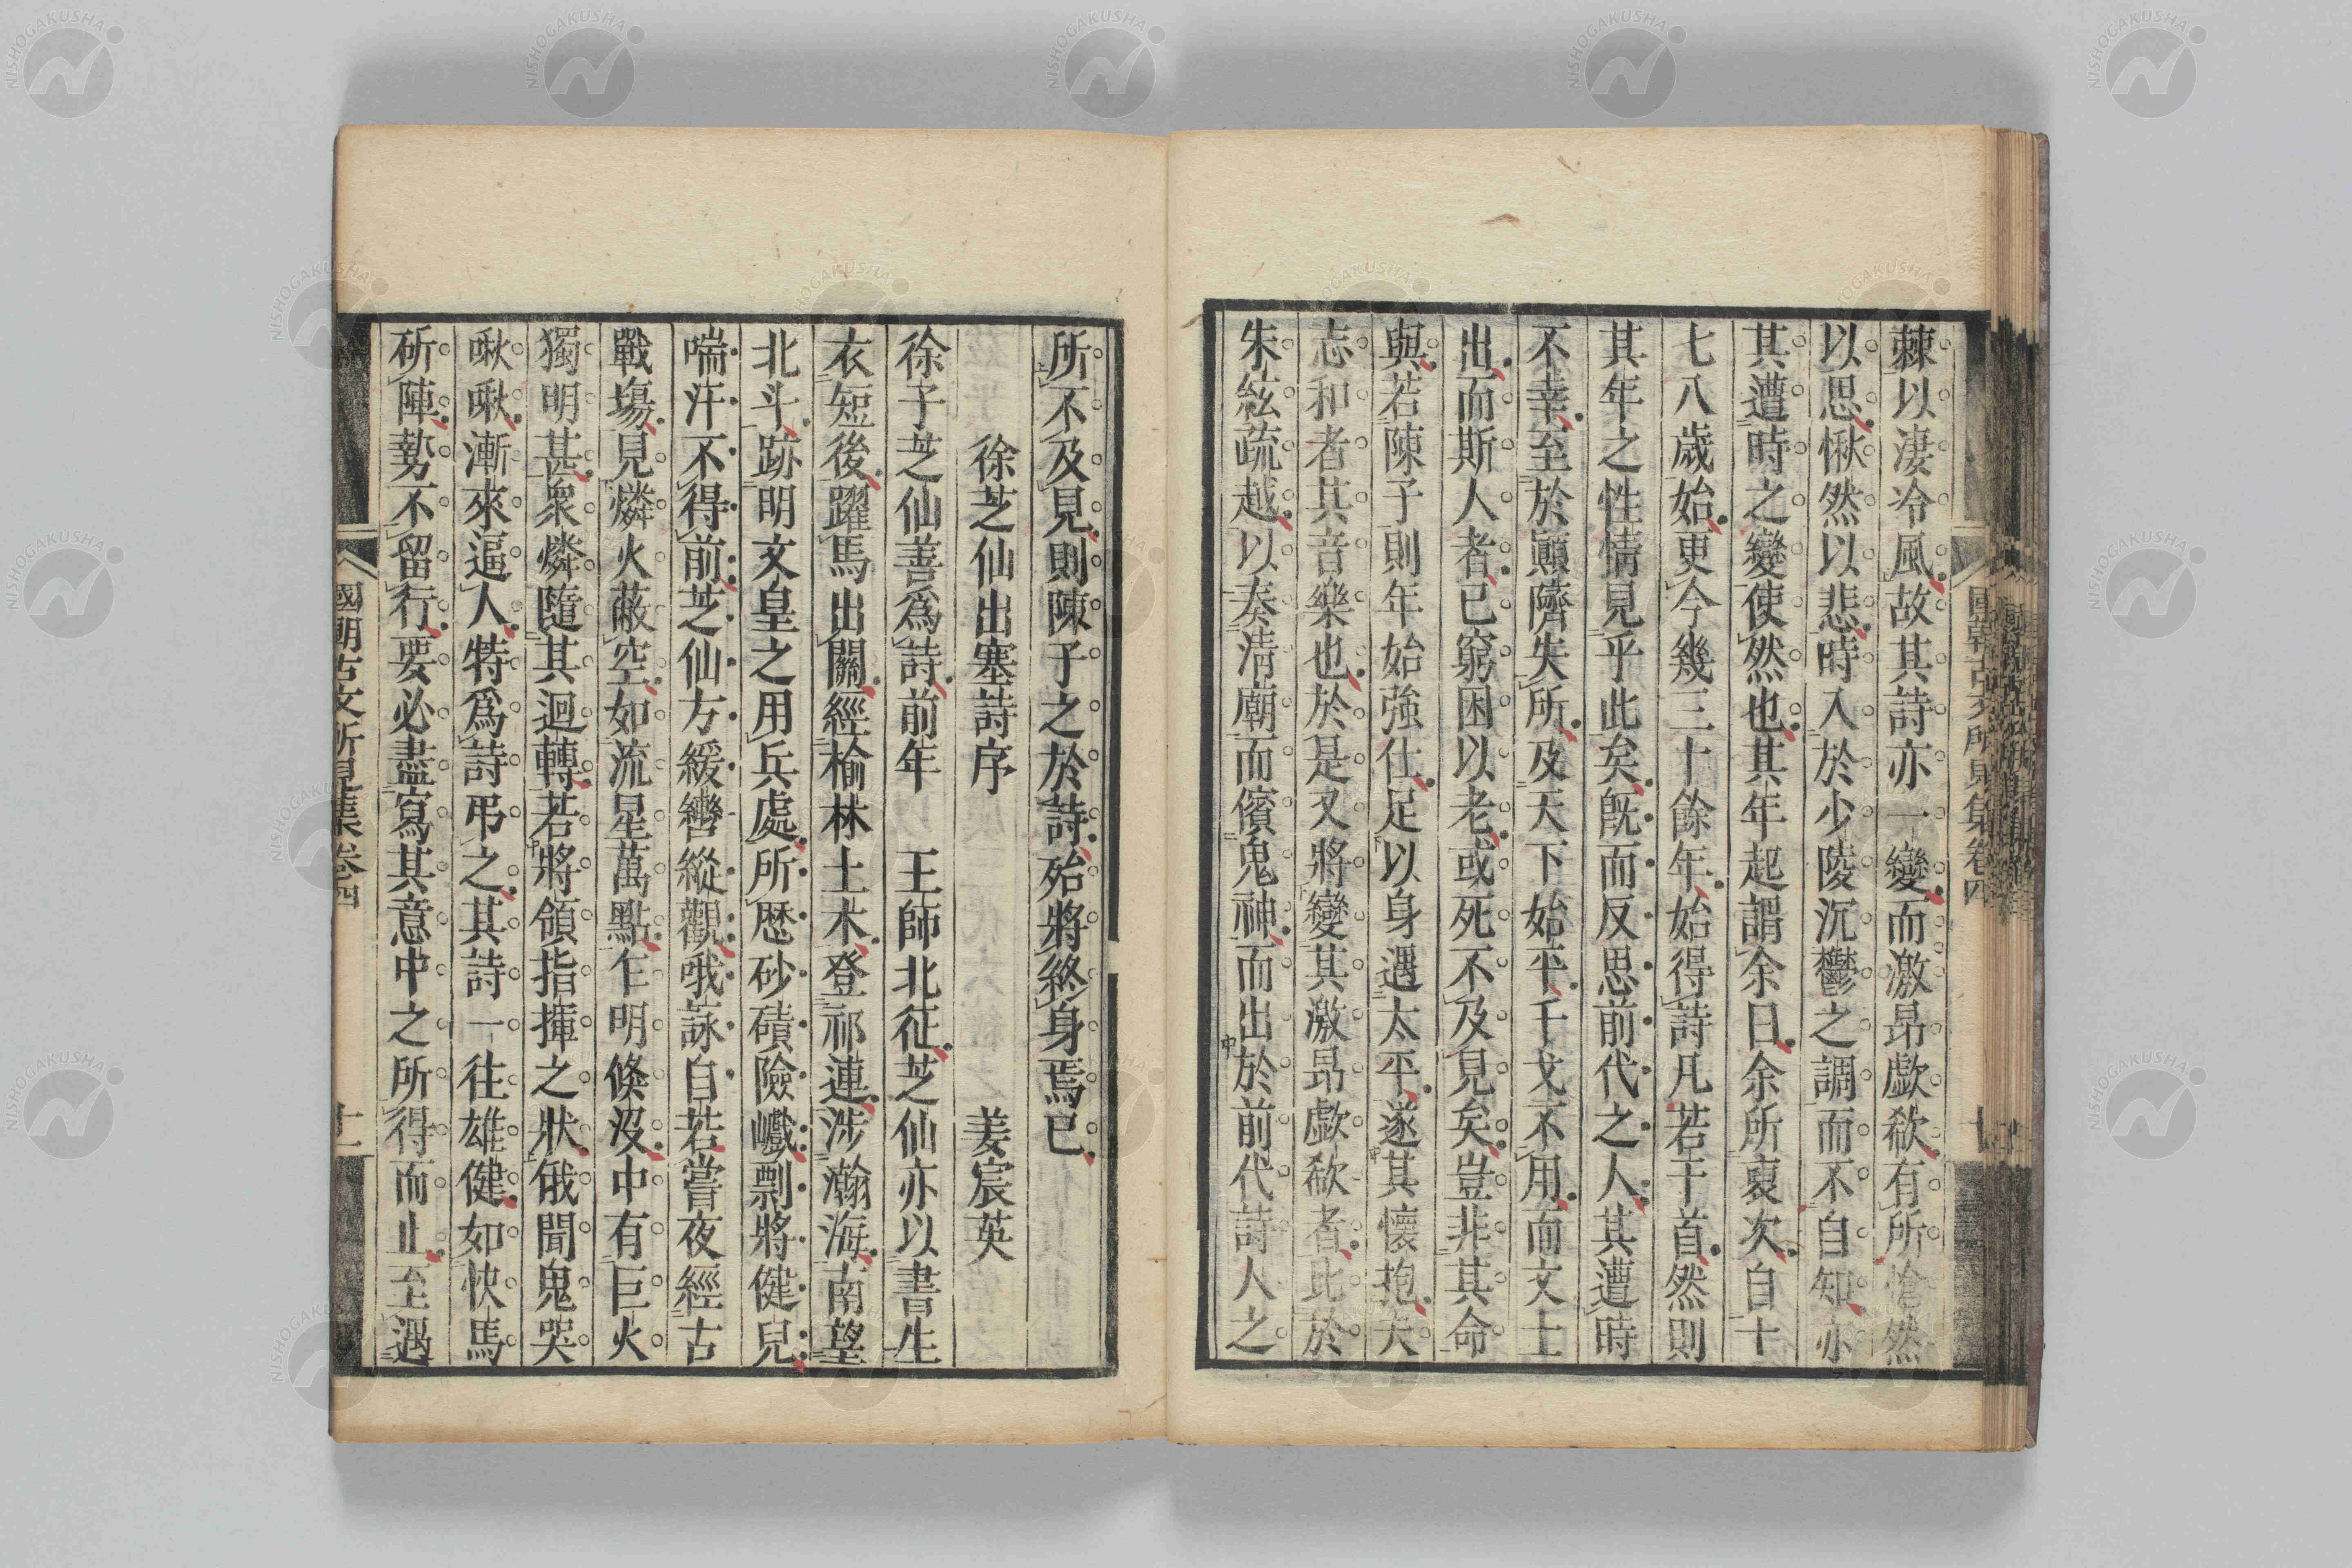 棘以凄冷風故其詩亦一變而激昂歔欷有所愴然
以思愀然以悲時入於少陵沉鬱之調而不自知亦
其遭時之變使然也其年起謂余曰余所裒次自十
七八歲始更今幾三十餘年始得詩凡若干首然則
其年之性情見乎此矣旣而反思前代之人其遭時
不幸至於顚隮失所及天下始平干戈不用而文士
出而斯人者已窮困以老或死不及見矣豈非其命
與若陳子則年始強仕足以身遇太平遂其懷抱夫
志和者其音樂也於是又將變其激昂歔欷者比於
朱絃疏越以奏淸廟而儐鬼神而出於前代詩人之
所不及見則陳子之於詩殆將終身焉已
徐芝仙出塞詩序 姜宸英
徐子芝仙善爲詩前年 王師北征芝仙亦以書生
衣短後躍馬出關經榆林土木登祁連涉瀚海南望
北斗跡明文皇之用兵處所歷砂磧險巇剽將健兒
喘汗不得前芝仙方緩轡縱觀哦詠自若嘗夜經古
戰場見燐火蔽空如流星萬點乍明倏沒中有巨火
獨明甚衆燐隨其迴轉若將領指揮之狀俄聞鬼哭
啾啾漸來逼人特爲詩弔之其詩一往雄健如快馬
斫陣勢不留行要必盡寫其意中之所得而止至遇
國朝古文所見集卷四
十一
NISHOGAKUSHA